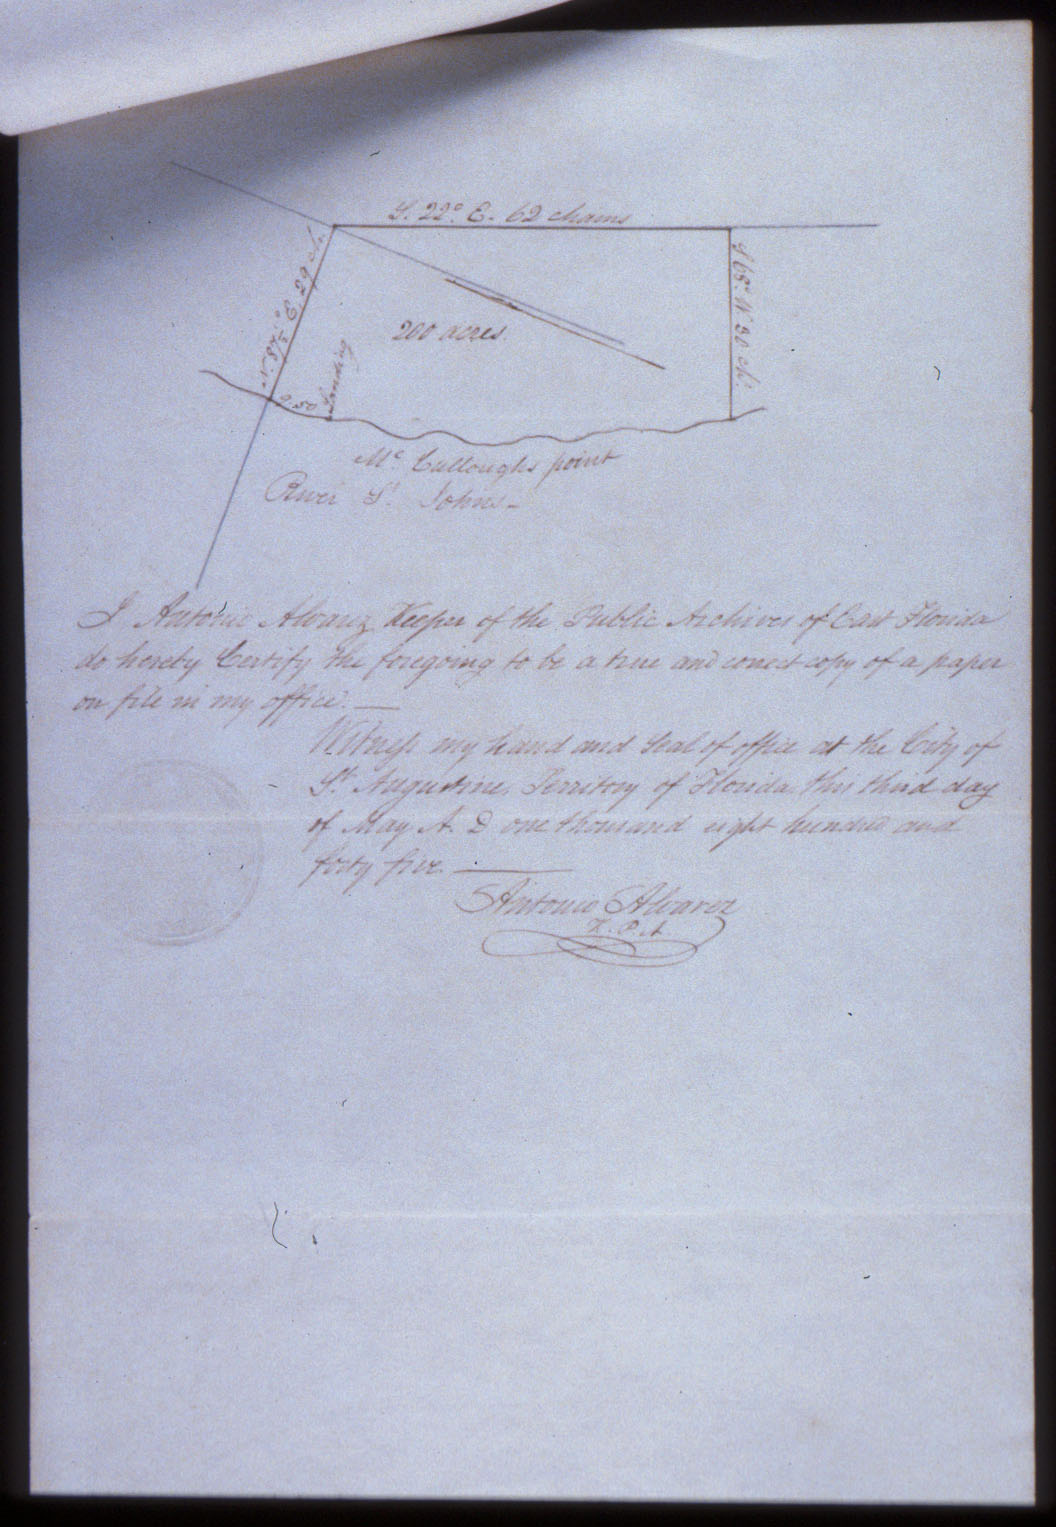 S. 22° E. 62 chains
N. 87½° E. 29 ch.
S 68° W. 30 ch.
200 acres.
9.50
Landing
Mc Culloughs point
River St. Johns -
I Antonio Alvarez Keeper of the Public Archives of East Florida
do hereby Certify the foregoing to be a true and correct copy of a paper
on file in my office. —
Witness my hand and Seal of office at the City of
St. Augustine, Territory of Florida this third day
of May A. D one thousand eight hundred and
forty five. —
Antonio Alvarez
K. P. A.